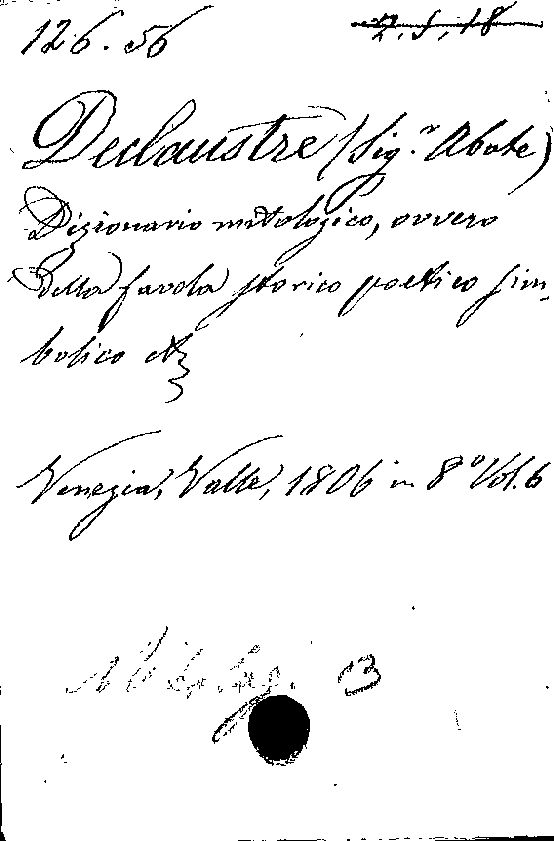 126.56 2.5.18
Declaustre (Sig.r Abate)
Dizionario mitologico, ovvero
della favola storico poetico sim-
bolico etc
Venezia, Valle, 1806 in 8° Vol. 6
Mitologi 13